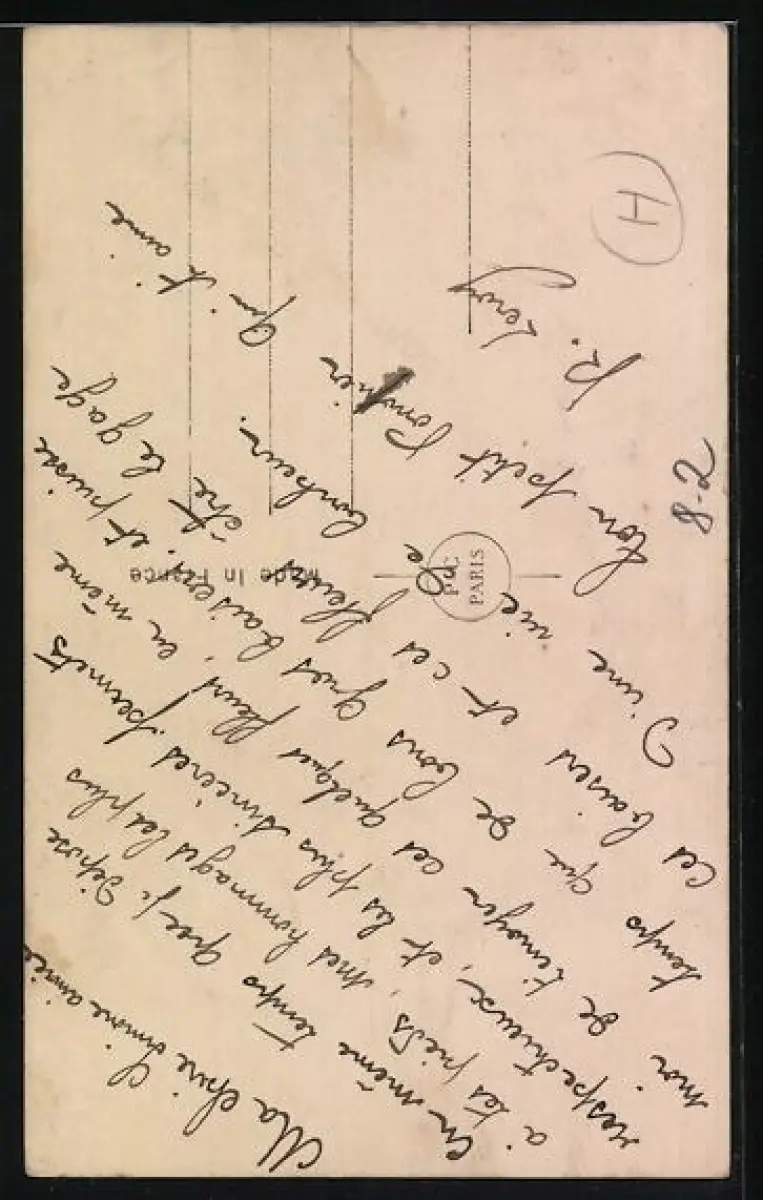 Ma chère Simone aimée
En même temps que je dépose
à tes pieds, mes hommages les plus
respectueux, et les plus sincères, permets
moi de t'envoyer ces quelques fleurs, en même
temps que de bons gros baisers, et puisse
ces baisers et ces fleurs être le gage
D'une vie de bonheur.
Ton petit Pompier qui t'aime
R. Leroy
Made In France
PC
PARIS
H
8-2